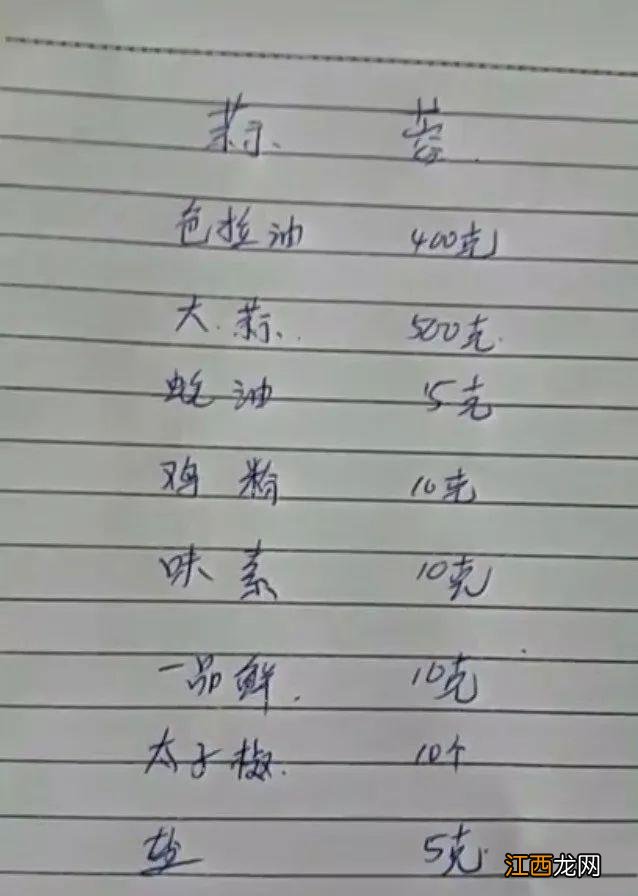 蒜 蓉
色拉油 400克
大蒜 500克
蚝油 15克
鸡粉 10克
味素 10克
一品鲜 10克
太子椒 10个
盐 5克
江西龙网